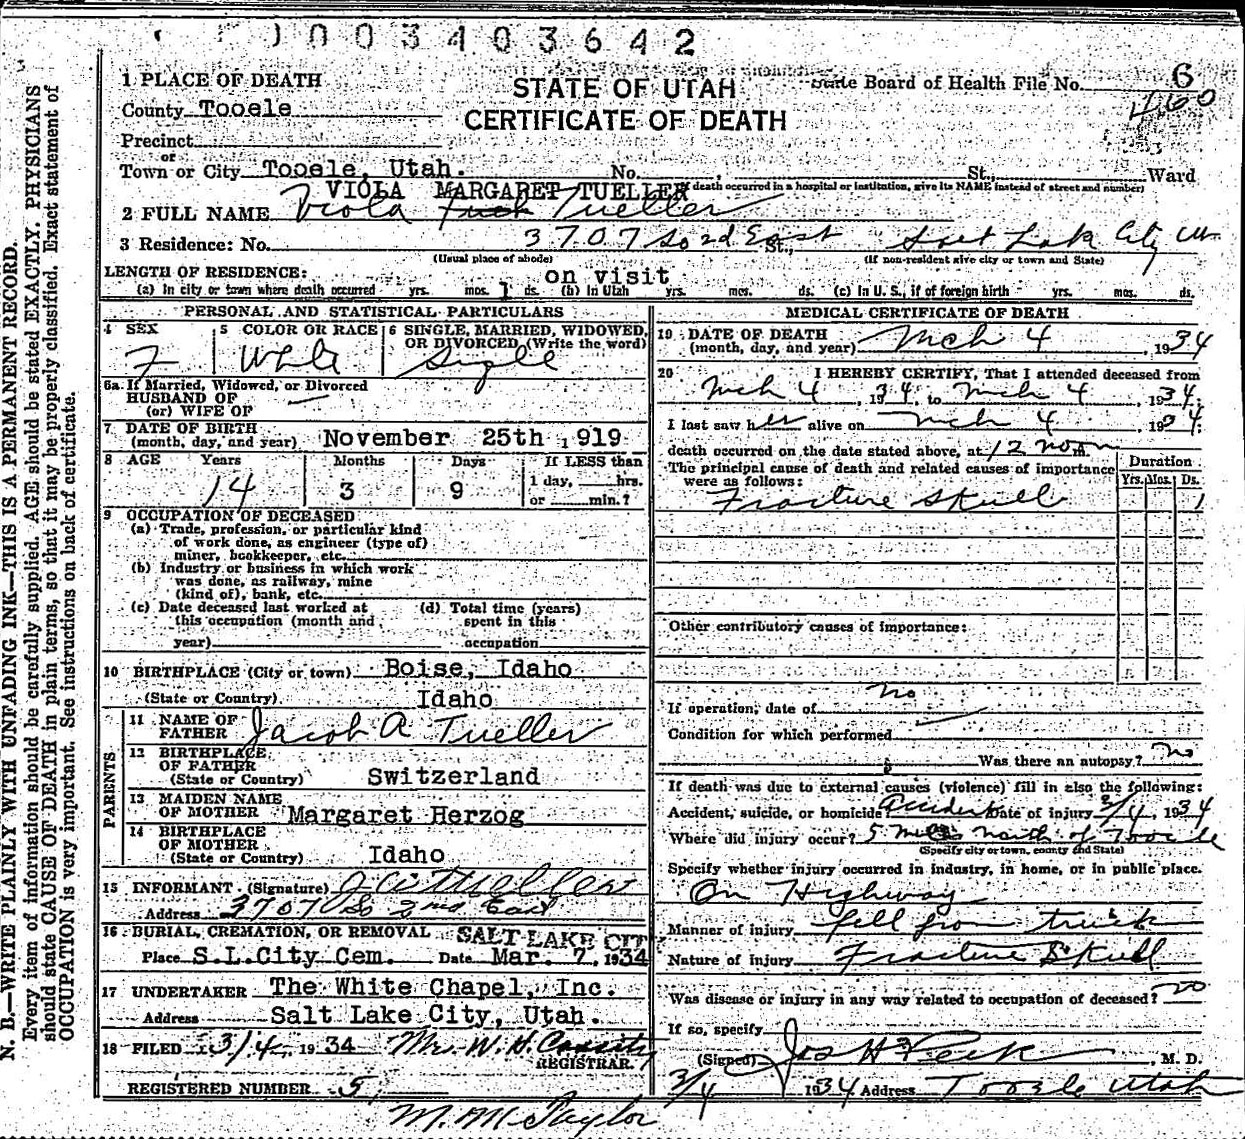 0003403642
1 PLACE OF DEATH
County Tooele
STATE OF UTAH
CERTIFICATE OF DEATH
State Board of Health File No. 6
460
Precinct
or
Town or City Tooele, Utah. No. St., Ward
(If death occurred in a hospital or institution, give its NAME instead of street and number)
VIOLA MARGARET TUELLER
2 FULL NAME Viola Tueller
3 Residence: No. 3707 So 2nd East St., Salt Lake City Ut
(Usual place of abode) (If non-resident give city or town and State)
LENGTH OF RESIDENCE: on visit
(a) In city or town where death occurred yrs. mos. 1 ds. (b) In Utah yrs. mos. ds. (c) In U. S., if of foreign birth yrs. mos. ds.
PERSONAL AND STATISTICAL PARTICULARS
4 SEX 5 COLOR OR RACE 6 SINGLE, MARRIED, WIDOWED, OR DIVORCED (Write the word)
F White Single
6a If Married, Widowed, or Divorced
HUSBAND OF
(or) WIFE OF —
7 DATE OF BIRTH
(month, day, and year) November 25th 1919
8 AGE Years Months Days If LESS than
14 3 9 1 day, hrs.
or min.?
9 OCCUPATION OF DECEASED
(a) Trade, profession, or particular kind
of work done, as engineer (type of)
miner, bookkeeper, etc.
(b) Industry or business in which work
was done, as railway, mine
(kind of), bank, etc.
(c) Date deceased last worked at (d) Total time (years)
this occupation (month and spent in this
year) occupation
10 BIRTHPLACE (City or town) Boise, Idaho
(State or Country) Idaho
PARENTS
11 NAME OF
FATHER Jacob A Tueller
12 BIRTHPLACE
OF FATHER
(State or Country) Switzerland
13 MAIDEN NAME
OF MOTHER Margaret Herzog
14 BIRTHPLACE
OF MOTHER
(State or Country) Idaho
15 INFORMANT (Signature) J A Tueller
Address 3707 So 2nd East
16 BURIAL, CREMATION, OR REMOVAL SALT LAKE CITY
Place S.L.City Cem. Date Mar. 7, 1934
17 UNDERTAKER The White Chapel, Inc.
Address Salt Lake City, Utah.
18 FILED 3/4, 1934 Mrs. W. H. Cassity
REGISTRAR.
REGISTERED NUMBER 5
M. M. McTaylor
MEDICAL CERTIFICATE OF DEATH
19 DATE OF DEATH
(month, day, and year) Mch 4, 1934
20 I HEREBY CERTIFY, That I attended deceased from
Mch 4, 1934, to Mch 4, 1934;
I last saw her alive on Mch 4, 1934;
death occurred on the date stated above, at 12 noon m.
The principal cause of death and related causes of importance
were as follows: Duration
Yrs. Mos. Ds.
Fracture Skull 1
Other contributory causes of importance:
If operation, date of no
Condition for which performed —
Was there an autopsy? no
If death was due to external causes (violence) fill in also the following:
Accident, suicide, or homicide? accident Date of injury 3/4, 1934
Where did injury occur? 5 miles north of Tooele
(Specify city or town, county and State)
Specify whether injury occurred in industry, in home, or in public place.
On Highway
Manner of injury fell from truck
Nature of injury Fracture Skull
Was disease or injury in any way related to occupation of deceased? no
If so, specify
(Signed) Jos H Peck, M. D.
3/4 1934 Address Tooele Utah
N. B.—WRITE PLAINLY WITH UNFADING INK—THIS IS A PERMANENT RECORD.
Every item of information should be carefully supplied. AGE should be stated EXACTLY. PHYSICIANS
should state CAUSE OF DEATH in plain terms, so that it may be properly classified. Exact statement of
OCCUPATION is very important. See instructions on back of certificate.